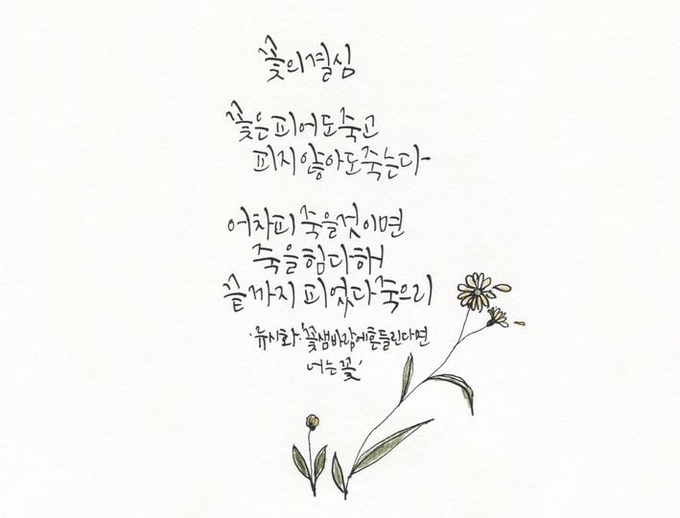 꽃의결심
꽃은피어도죽고
피지않아도죽는다
어차피죽을것이면
죽을힘다해
끝까지피었다죽으리
·류시화·'꽃샘바람에흔들린다면
너는꽃'